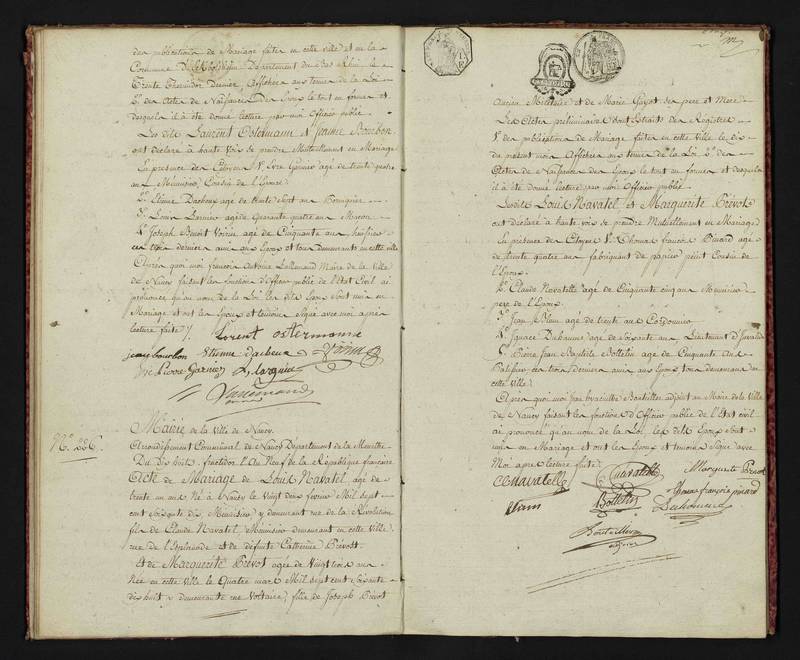 des publications de Mariage faites en cette ville et en la
Commune d'Ekbolsheim Département du Bas Rhin le
Trente Thermidor dernier, Affichées aux termes de la Loi
2° des Actes de Naissances des Epoux le tout en forme et
desquels il a été donné lecture par moi Officier public
Les dits Laurent Ostermann et Jeanne Bourbon
ont déclaré à haute voix se prendre Mutuellement en Mariage
En présence des Citoyens 1° Evre Garnier agé de trente quatre
ans Menuisier Cousin de l'Epouse
2° Etienne Dacheux agé de trente sept ans
3° Louis agé de Quarante quatre ans Macon
4° Joseph Benoit Voirin agé de Cinquante ans huissier
ces trois derniers amis aux Epoux et tous demeurants en cette ville
Après quoi moi françois Antoine Lallemand Maire de la Ville
de Nancy faisant les fonctions d'officier public de l'Etat Civil ai
prononcé qu'au nom de la Loi les dits Epoux sont unis en
Mariage et ont les Epoux et temoins Signé avec moi après
lecture faite /.
Lorent ostermanne
jeane bourbon Etienne dacheux Voirin
Garnier
Lallemand
N° 226.
Mairie de la Ville de Nancy.
Arrondissement Communal de Nancy Département de la Meurthe
Du Dix huit fructidor l'An Neuf de la République française
Acte de Mariage de Louis Navatel, agé de
trente un ans Né à Nancy le Vingt deux février Mil Sept
cent Soixante dix Menuisier y demeurant rue de la Révolution
fils de Claude Navatel, Menuisier demeurant en cette Ville
rue de l'Esplanade et de défunte Catherine Prévost
Et de Marguerite Prévot agée de Vingt trois ans
Née en cette ville le Quatre mars Mil Sept cent Soixante
dix huit, y demeurante rue Voltaire, fille de Joseph Prévot
Ancien Militaire et de Marie Guyot ses père et mere
Les Actes preliminaires sont Extraits des Registres
1° des publications de Mariage faites en cette Ville le dix
du présent mois Affichées aux termes de la Loi 2° des
Actes de Naissances des Epoux le tout en forme et desquels
il a été donné lecture par moi Officier public
Lesdits Louis Navatel et Marguerite Prévot
ont déclaré à haute voix se prendre Mutuellement en Mariage
En présence des Citoyens 1° Thomas françois Pinard agé
de trente quatre ans fabriquant de papier peint Cousin de
l'Epoux
2° Claude Navatelle agé de Cinquante cinq ans Menuisier
père de l'Epoux
3° Jean Stam agé de trente ans Cordonnier
4° Ignace agé de Soixante ans Lieutenant d'Invalide
5° Pierre Jean Baptiste Bottelin agé de Cinquante ans
ces trois derniers amis aux Epoux tous demeurans en
cette Ville
Après quoi moi hyacinthe Bouteiller adjoint au Maire de la Ville
de Nancy faisant les fonctions d'Officier public de l'Etat civil
ai prononcé qu'au nom de la Loi, les dits Epoux sont
unis en Mariage et ont les Epoux et temoins Signé avec
Moi après lecture faite /.
C Navatelle Navatelle Marguerite Prevot
Stam Bottelin Thomas françois pinard
Bouteiller
adjoint